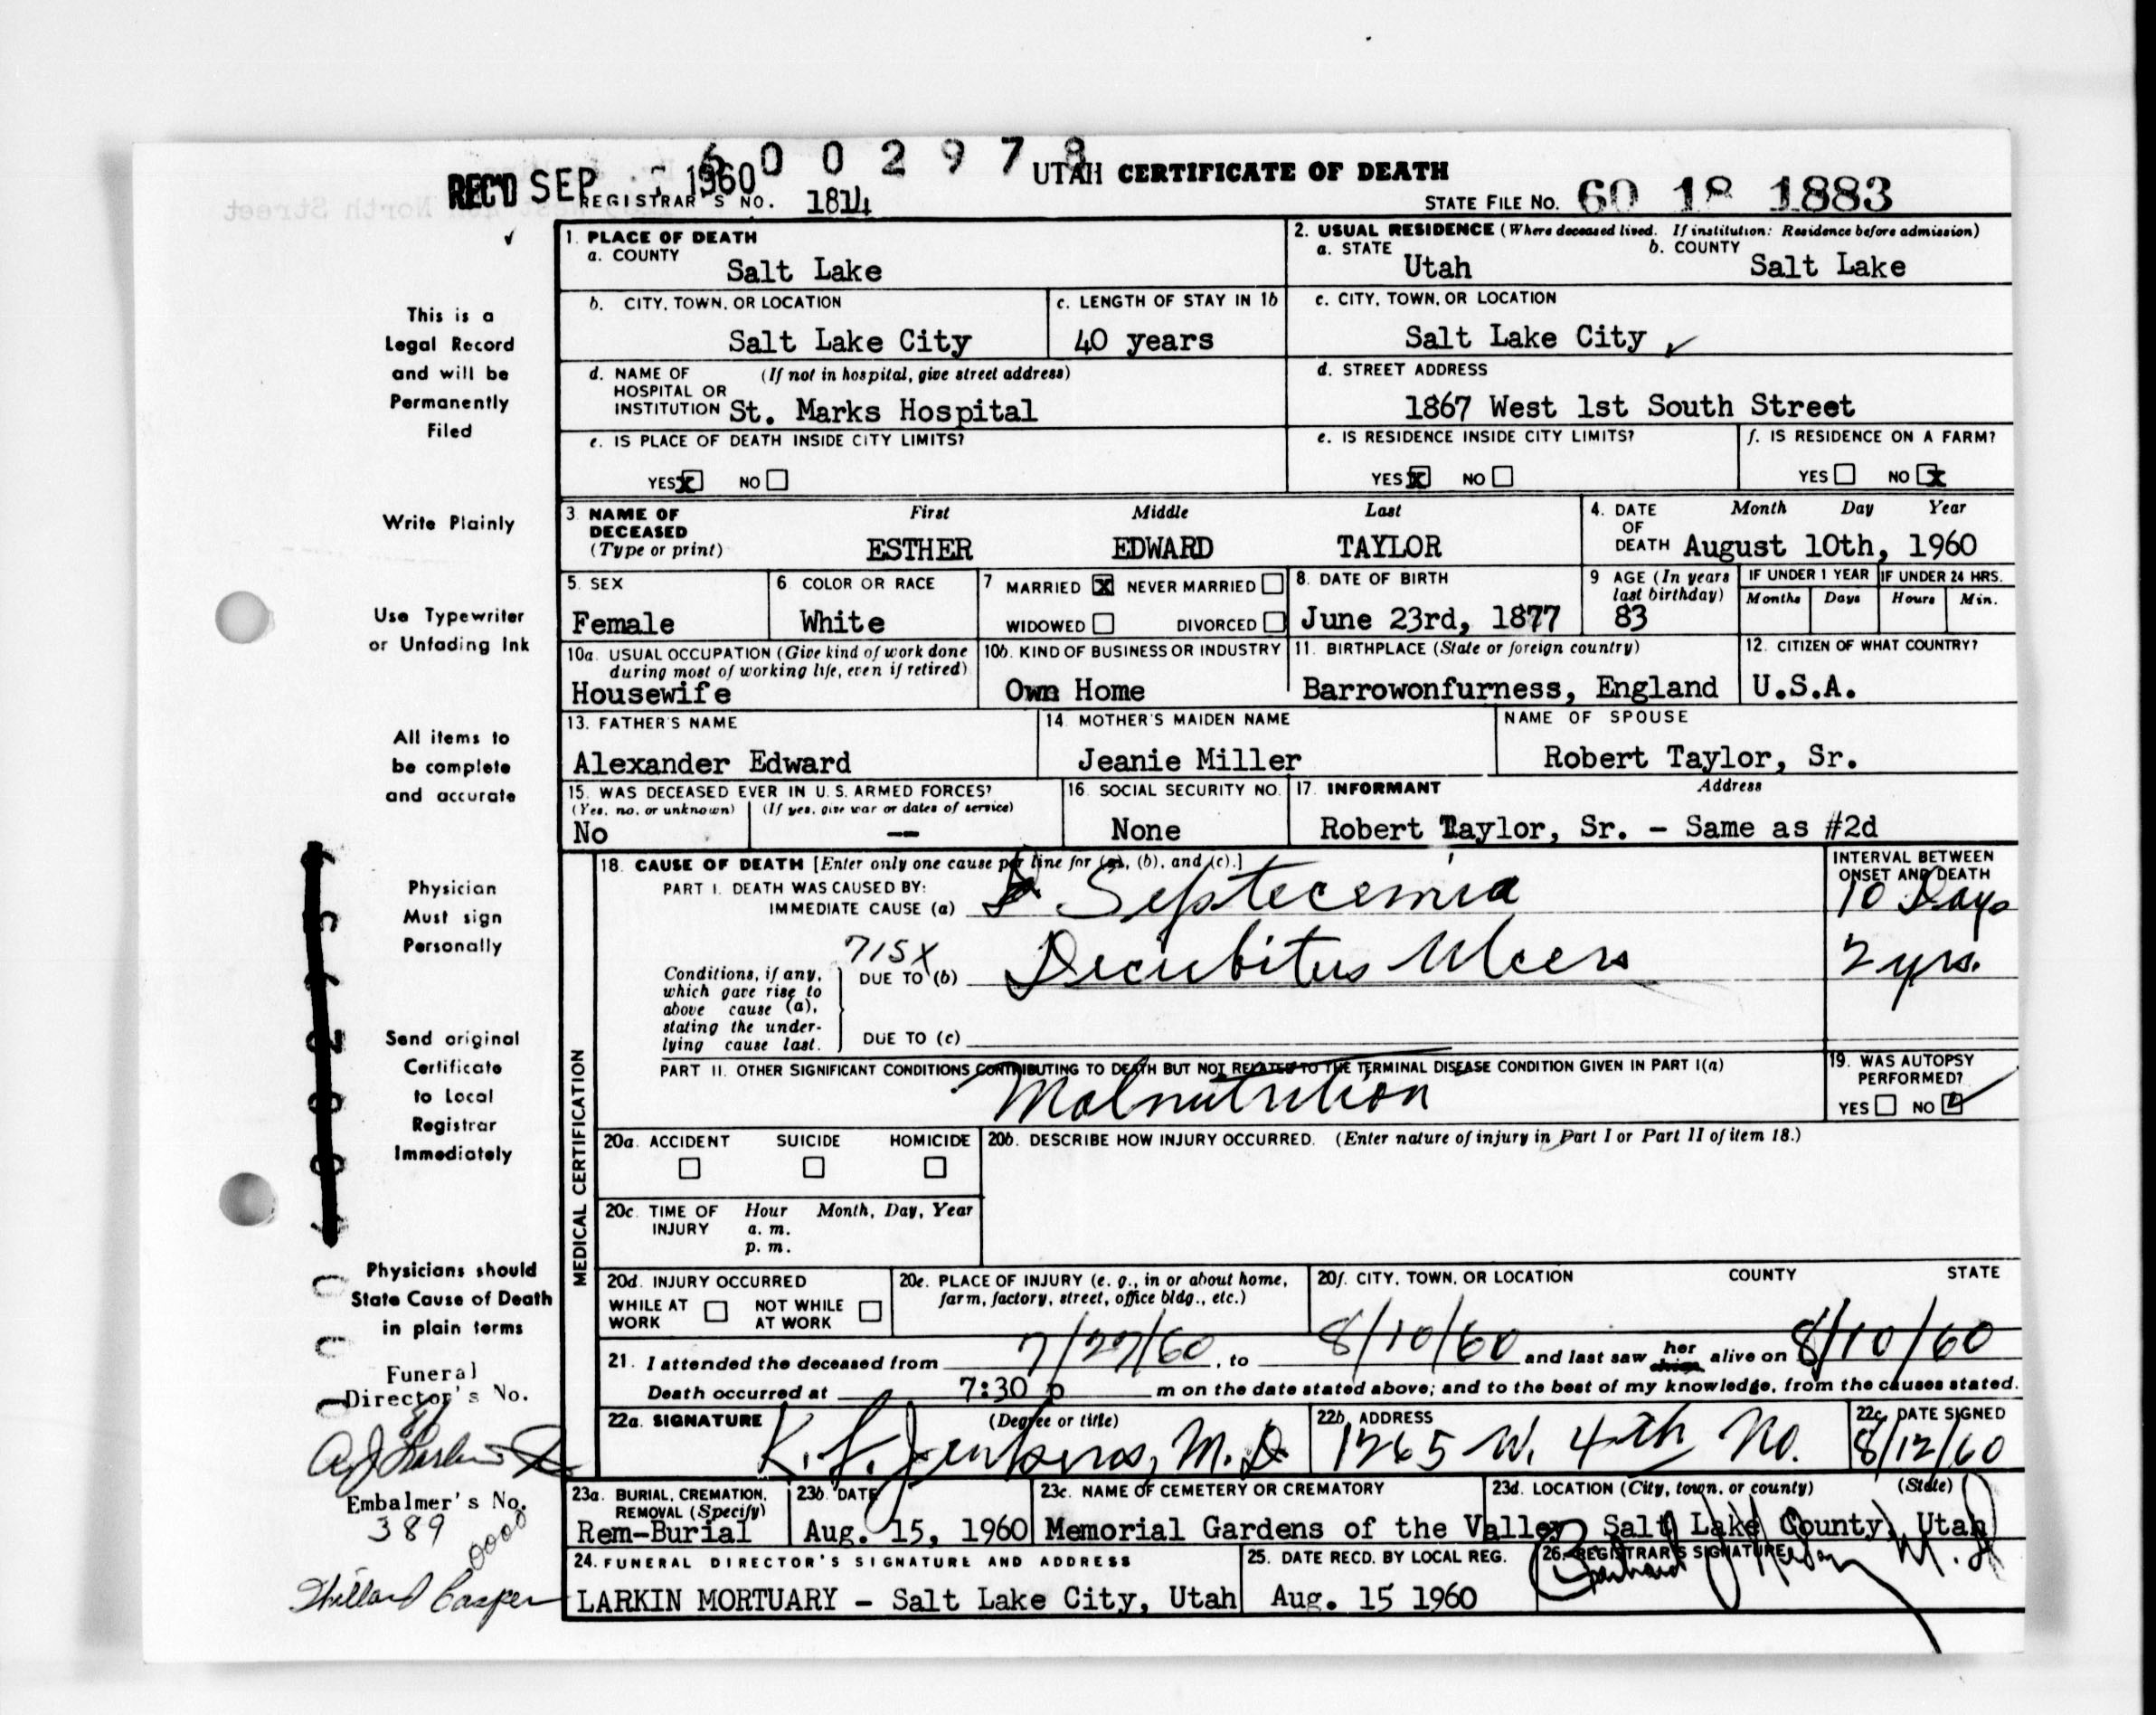 6 0 0 2 9 7 8
REC'D SEP 1960 UTAH CERTIFICATE OF DEATH
REGISTRAR'S NO. 1814 STATE FILE NO. 60 18 1883
1. PLACE OF DEATH 2. USUAL RESIDENCE (Where deceased lived. If institution: Residence before admission)
a. COUNTY Salt Lake a. STATE Utah b. COUNTY Salt Lake
b. CITY, TOWN, OR LOCATION c. LENGTH OF STAY IN 1b c. CITY, TOWN, OR LOCATION
Salt Lake City 40 years Salt Lake City
d. NAME OF HOSPITAL OR INSTITUTION (If not in hospital, give street address) d. STREET ADDRESS
St. Marks Hospital 1867 West 1st South Street
e. IS PLACE OF DEATH INSIDE CITY LIMITS? e. IS RESIDENCE INSIDE CITY LIMITS? f. IS RESIDENCE ON A FARM?
YES X NO YES X NO YES NO X
3. NAME OF DECEASED (Type or print) First Middle Last 4. DATE OF DEATH Month Day Year
ESTHER EDWARD TAYLOR August 10th, 1960
5. SEX 6. COLOR OR RACE 7 MARRIED X NEVER MARRIED WIDOWED DIVORCED 8. DATE OF BIRTH 9 AGE (In years last birthday) IF UNDER 1 YEAR IF UNDER 24 HRS.
Months Days Hours Min.
Female White June 23rd, 1877 83
10a. USUAL OCCUPATION (Give kind of work done during most of working life, even if retired) 10b. KIND OF BUSINESS OR INDUSTRY 11. BIRTHPLACE (State or foreign country) 12. CITIZEN OF WHAT COUNTRY?
Housewife Own Home Barrowonfurness, England U.S.A.
13. FATHER'S NAME 14. MOTHER'S MAIDEN NAME NAME OF SPOUSE
Alexander Edward Jeanie Miller Robert Taylor, Sr.
15. WAS DECEASED EVER IN U.S. ARMED FORCES? 16. SOCIAL SECURITY NO. 17. INFORMANT Address
(Yes, no, or unknown) (If yes, give war or dates of service)
No — None Robert Taylor, Sr. - Same as #2d
18. CAUSE OF DEATH [Enter only one cause per line for (a), (b), and (c).] INTERVAL BETWEEN ONSET AND DEATH
PART I. DEATH WAS CAUSED BY:
IMMEDIATE CAUSE (a) Septecemia 10 Days
715X
Conditions, if any, which gave rise to above cause (a), stating the underlying cause last.
DUE TO (b) Decubitus Ulcers 2 yrs.
DUE TO (c)
PART II. OTHER SIGNIFICANT CONDITIONS CONTRIBUTING TO DEATH BUT NOT RELATED TO THE TERMINAL DISEASE CONDITION GIVEN IN PART I(a) 19. WAS AUTOPSY PERFORMED?
Malnutrition YES NO
20a. ACCIDENT SUICIDE HOMICIDE 20b. DESCRIBE HOW INJURY OCCURRED. (Enter nature of injury in Part I or Part II of item 18.)
20c. TIME OF INJURY Hour a. m. p. m. Month, Day, Year
20d. INJURY OCCURRED 20e. PLACE OF INJURY (e. g., in or about home, farm, factory, street, office bldg., etc.) 20f. CITY, TOWN, OR LOCATION COUNTY STATE
WHILE AT WORK NOT WHILE AT WORK
21. I attended the deceased from 7/27/60, to 8/10/60 and last saw her him alive on 8/10/60
Death occurred at 7:30 p m on the date stated above; and to the best of my knowledge, from the causes stated.
22a. SIGNATURE (Degree or title) 22b. ADDRESS 22c. DATE SIGNED
K. L. Jenkins, M.D 1265 W. 4th No. 8/12/60
23a. BURIAL, CREMATION, REMOVAL (Specify) 23b. DATE 23c. NAME OF CEMETERY OR CREMATORY 23d. LOCATION (City, town, or county) (State)
Rem-Burial Aug. 15, 1960 Memorial Gardens of the Valley Salt Lake County, Utah
24. FUNERAL DIRECTOR'S SIGNATURE AND ADDRESS 25. DATE RECD. BY LOCAL REG. 26. REGISTRAR'S SIGNATURE
LARKIN MORTUARY - Salt Lake City, Utah Aug. 15 1960
MEDICAL CERTIFICATION
This is a
Legal Record
and will be
Permanently
Filed
Write Plainly
Use Typewriter
or Unfading Ink
All items to
be complete
and accurate
Physician
Must sign
Personally
Send original
Certificate
to Local
Registrar
Immediately
Physicians should
State Cause of Death
in plain terms
Funeral
Director's No.
Embalmer's No.
389
0000